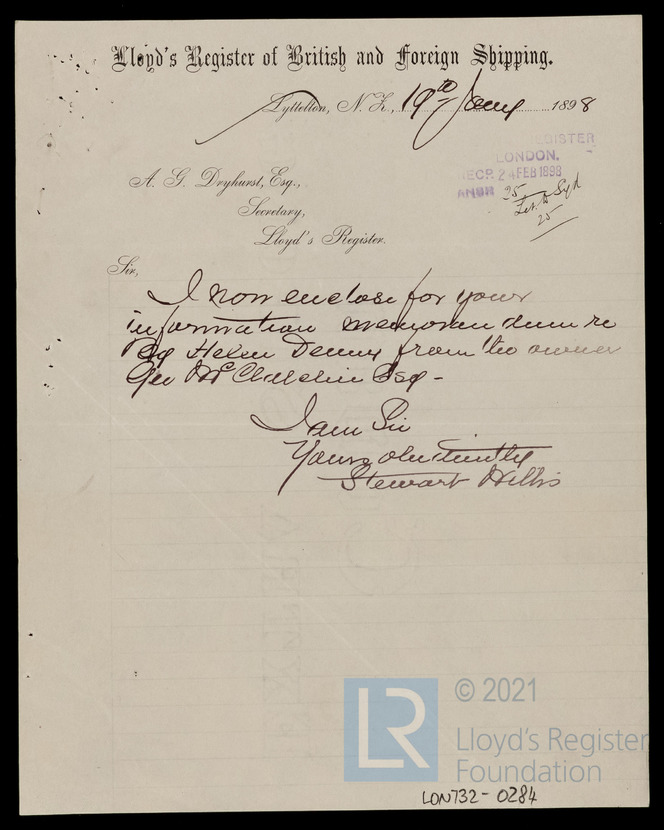 Lloyd's Register of British and Foreign Shipping.
Lyttelton, N.Z., 19th Jany 1898
REGISTER
LONDON.
RECP. 24 FEB 1898
ANSR 25
Let. to Syd
25
A. G. Dryhurst, Esq.,
Secretary,
Lloyd's Register.
Sir,
I now enclose for your
information memorandum re
Bq Helen Denny from the owner
Geo Mc Esq -
I am Sir
Yours obediently
Stewart Willis
LR
© 2021
Lloyd's Register
Foundation
LON732-0284